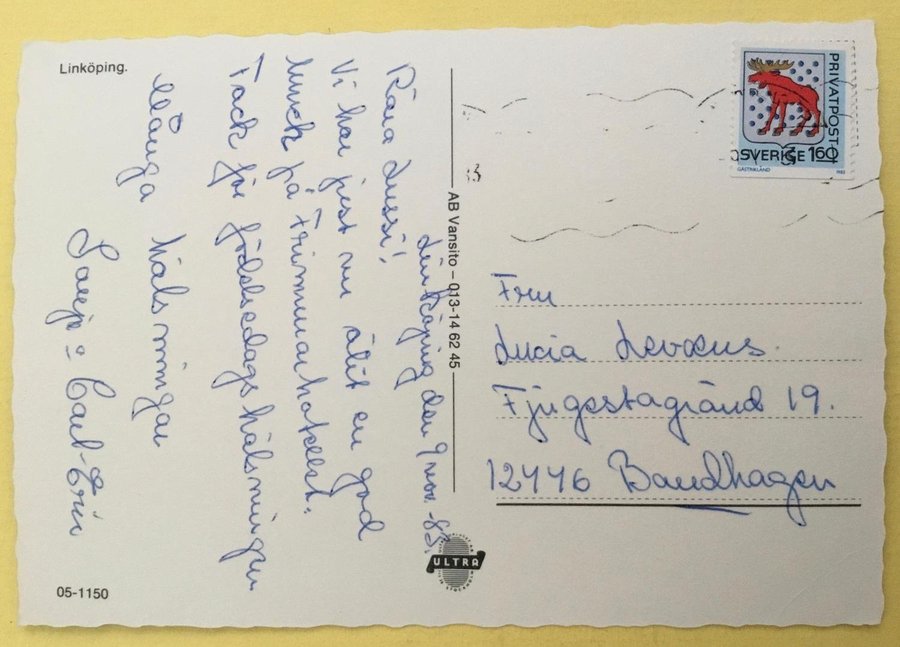 Linköping.
Linköping den 9 nov. -83.
Kära Lussi!
Vi har just nu ätit en god
lunch på Frimurarhotellet.
Tack för födelsedagshälsningen
Många hälsningar
Carl-Eric
05-1150
AB Vansito – 013-14 62 45
ULTRA
PRIVATPOST
SVERIGE 160
GÄSTRIKLAND 1983
Fru
Lucia Levæus.
Fjugestagränd 19.
12476 Bandhagen